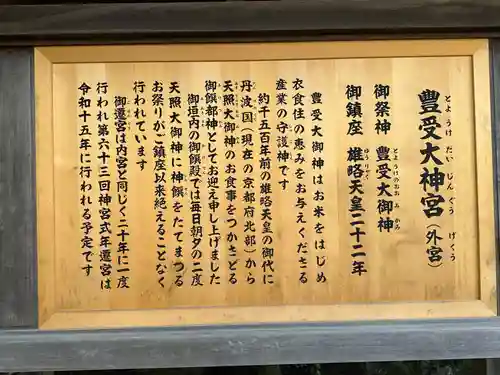 豊受大神宮（外宮）
とようけだいじんぐう げくう
御祭神 豊受大御神
とようけのおおみかみ
御鎮座 雄略天皇二十二年
ゆうりゃく
豊受大御神はお米をはじめ
衣食住の恵みをお与えくださる
産業の守護神です
約千五百年前の雄略天皇の御代に
丹波国（現在の京都府北部）から
天照大御神のお食事をつかさどる
御饌都神としてお迎え申し上げました
御垣内の御饌殿では毎日朝夕の二度
天照大御神に神饌をたてまつる
お祭りがご鎮座以来絶えることなく
行われています
御遷宮は内宮と同じく二十年に一度
行われ第六十三回神宮式年遷宮は
令和十五年に行われる予定です